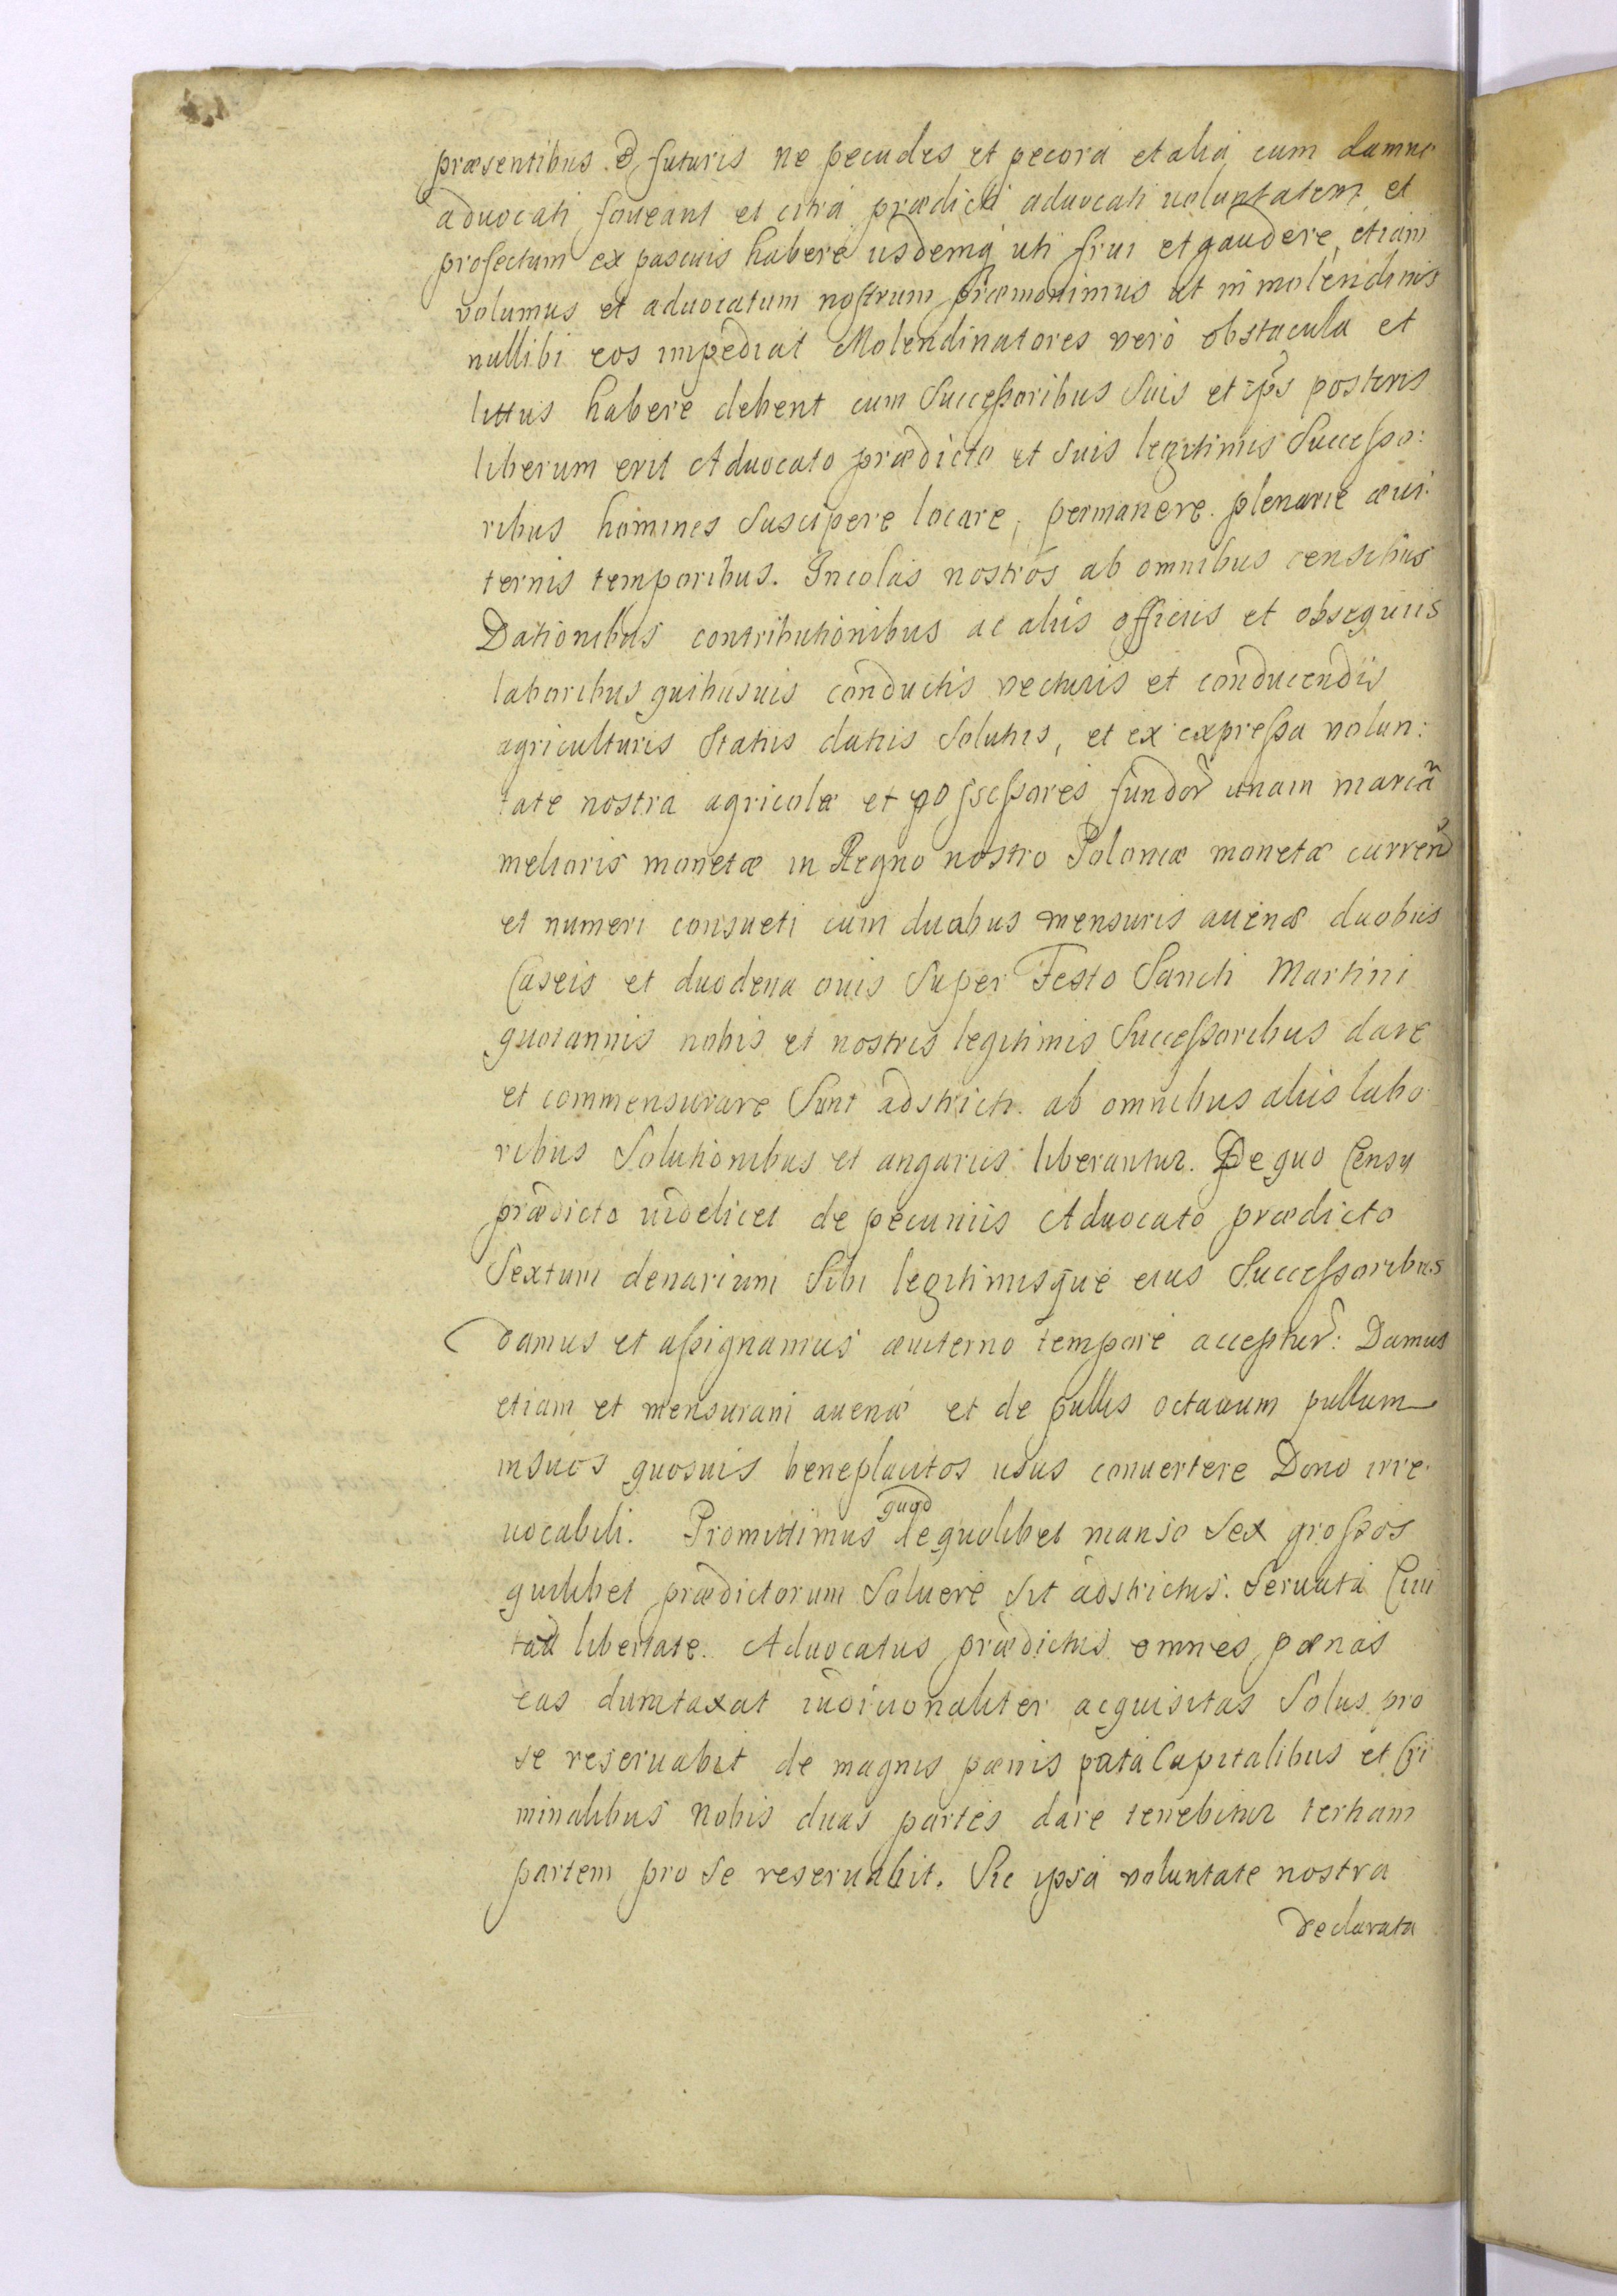 præsentibus & futuris ne pecudes et pecora et alia cum damno
aduocati foueant et citra prædicti aduocati uoluntatem et
profectum ex pascuis habere iisdemq uti frui et gaudere, etiam
volumus et aduocatum nostrum præmonimus ut in molendinis
nullibi eos impediat Molendinatores verò obstacula et
littus habere debent cum Successoribus Suis et ips posteris
liberum erit Aduocato prædicto et Suis legitimis Successo:
ribus homines Suscipere locare, permanere plenarie æui:
ternis temporibus. Incolas nostros ab omnibus censibus
Dationibus contributionibus ac aliis officiis et obsequiis
laboribus quibusuis conductis vecturis et conducendis
agriculturis Statiis datiis Solutis, et ex expressa volun:
tate nostra agricolæ et possessores fundor unam marcã
melioris monetæ in Regno nostro Poloniæ monetæ curren
et numeri consueti cum duabus mensuris auenæ duobus
Caseis et duodena ouis Super Festo Sancti Martini
quotannis nobis et nostris legitimis Successoribus dare
et commensurare Sunt adstricti ab omnibus aliis labo
ribus Solutionibus et angariis liberantur. De quo Censu
prædicto uidelicet de pecuniis Aduocato prædicto
Sextum denarium Sibi legitimisque eius Successoribus
damus et assignamus æuiterno tempore acceptur: Damus
etiam et mensuram auenæ et de pullis octauum pullum
in suos quosuis beneplacitos usus conuertere Dono irre:
uocabili. Promittimus quod de quolibet manso Sex grossos
quilibet prædictorum Soluere Sit adstrictus. Seruata Ciui
tad libertate. Aduocatus prædictus omnes pænas
eas dumtaxat iudicionaliter acquisitas Solus pro
se reseruabit de magnis pænis puta Capitalibus et Cri
minalibus Nobis duas partes dare tenebitur tertiam
partem pro Se reseruabit. Sic ipsa voluntate nostra
declarata